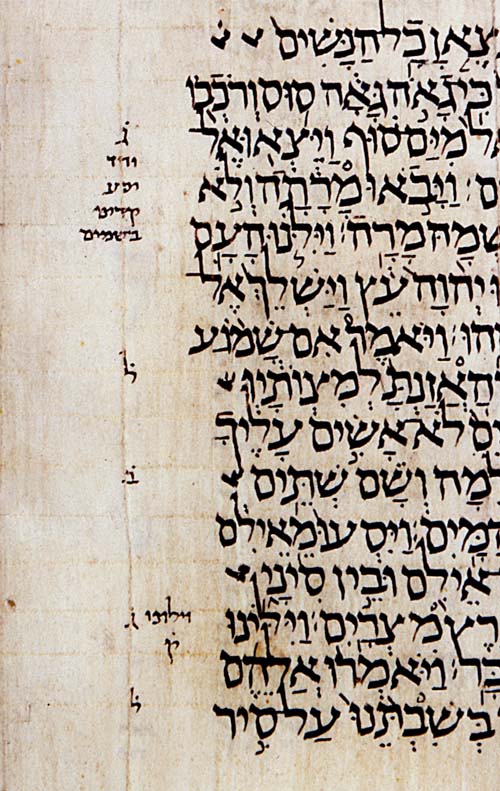 צֶאןָ כָל הַנָּשִׁים
כִּי גָאֹה גָּאָה סוּס וְרֹכְבוֹ
אֵל מִיַּם סוּף וַיֵּצְאוּ אֶל
ם׃ וַיָּבֹאוּ מָרָתָה וְלֹא
שְׁמָהּ מָרָה׃ וַיִּלֹּנוּ הָעָם
הוּ יְהוָה עֵץ וַיַּשְׁלֵךְ אֶל
הוּ׃ וַיֹּאמֶר אִם שָׁמוֹעַ
הַאֲזַנְתָּ לְמִצְוֹתָיו
ים לֹא אָשִׂים עָלֶיךָ
למָה וְשָׁם שְׁתֵּים
הַמָּיִם׃ וַיִּסְעוּ מֵאֵילִם
אֵילִם וּבֵין סִינָי
רֶץ מִצְרָיִם׃ וַיִּלִּינוּ
בָּר׃ וַיֹּאמְרוּ אֲלֵהֶם
בְּשִׁבְתֵּנוּ עַל סִיר
ג
בשמים
ל
ב
וילונו ג
ק
ל